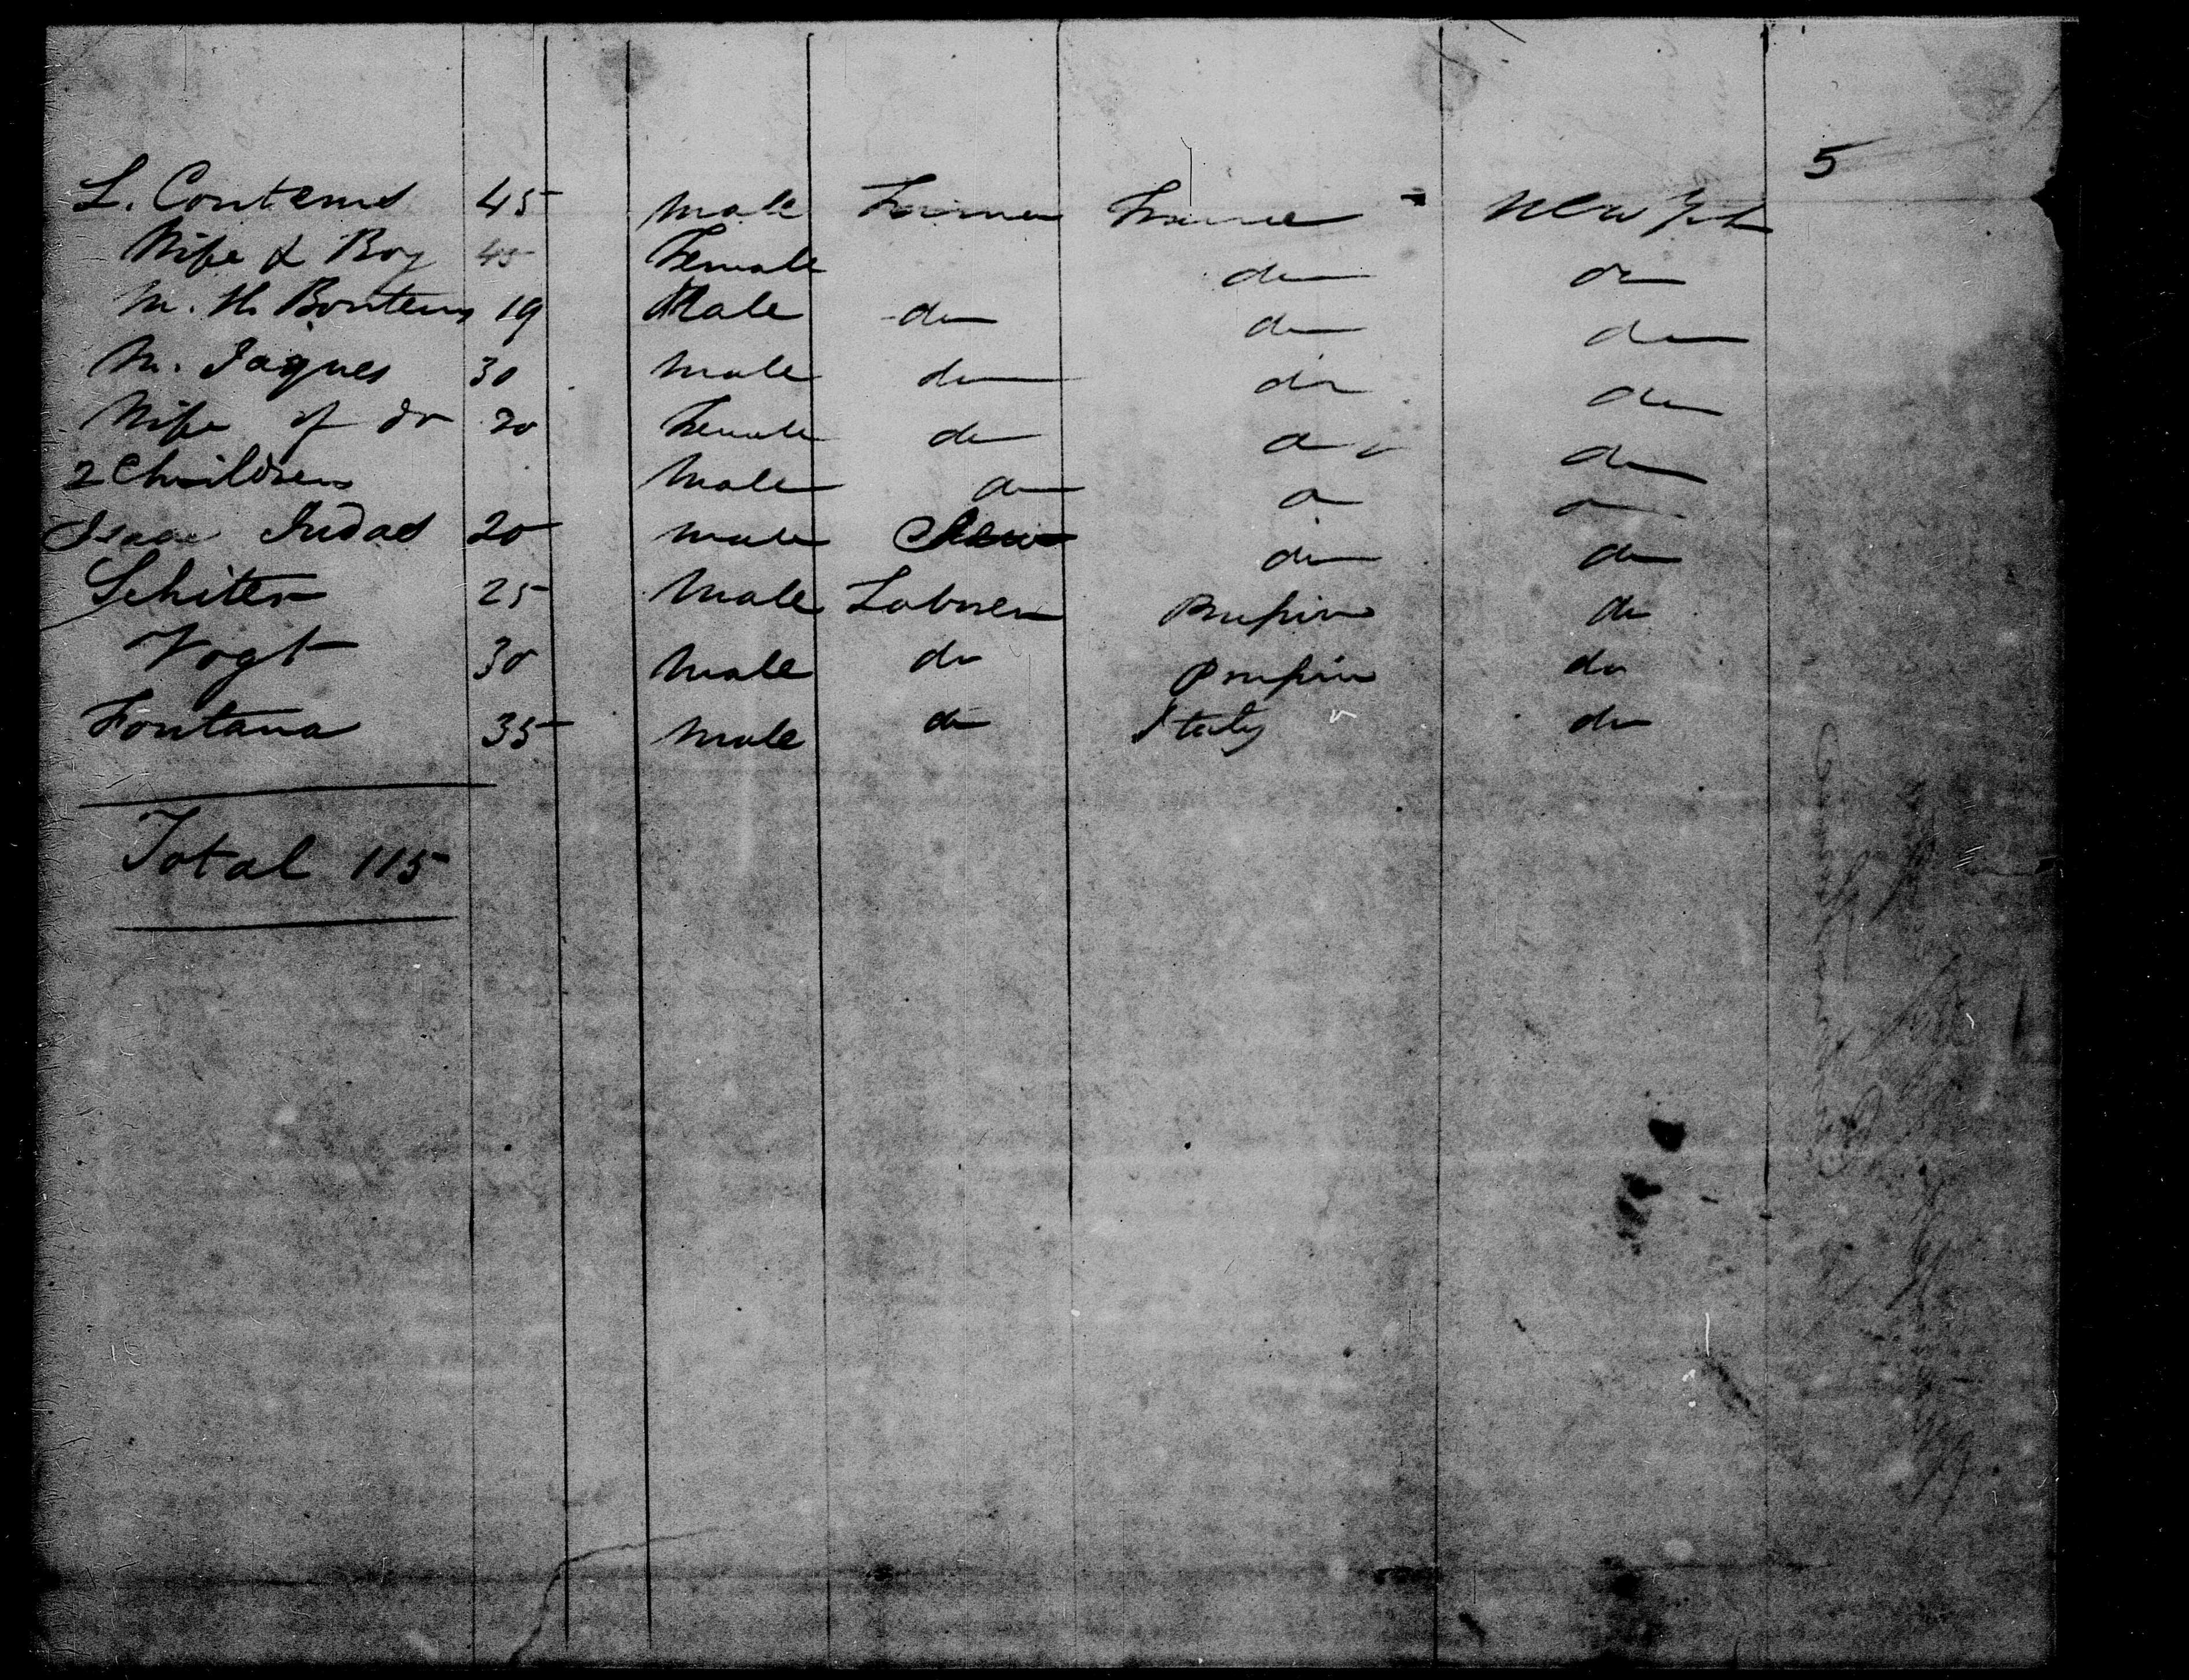 5
L. Contems 45 Male Farmer France New York
Wife & Boy 45 Female do do
M. H. Bontems 19 Male do do do
M. Jaques 30 Male do do do
Wife of do 20 Female do do do
2 Children Male do do do
Isaac Judas 20 Male do do
Schiter 25 Male Laborer Prussia do
Vogt 30 Male do Prussia do
Fontana 35 Male do Italy do
Total 115